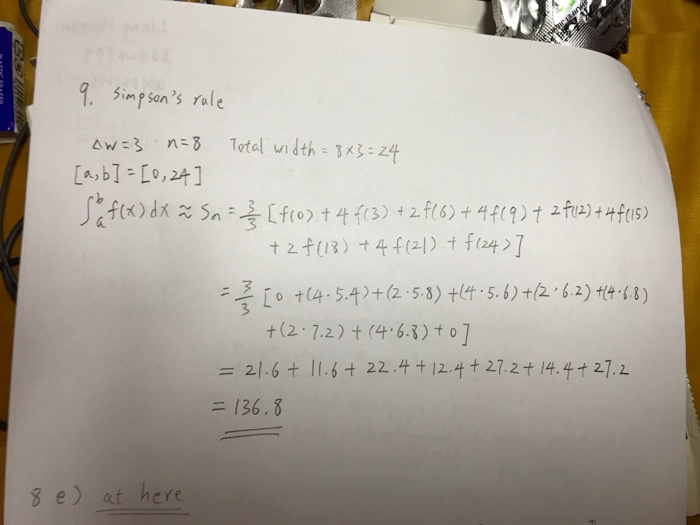 9. Simpson's rule
Δw=3 n=8 Total width = 8×3=24
[a,b] = [0,24]
∫ₐᵇ f(x) dx ≈ Sₙ = 3/3 [f(0) + 4f(3) + 2f(6) + 4f(9) + 2f(12) + 4f(15)
+ 2f(18) + 4f(21) + f(24)]
= 3/3 [0 + (4·5.4) + (2·5.8) + (4·5.6) + (2·6.2) + (4·6.8)
+ (2·7.2) + (4·6.8) + 0]
= 21.6 + 11.6 + 22.4 + 12.4 + 27.2 + 14.4 + 27.2
= 136.8
8 e) at here